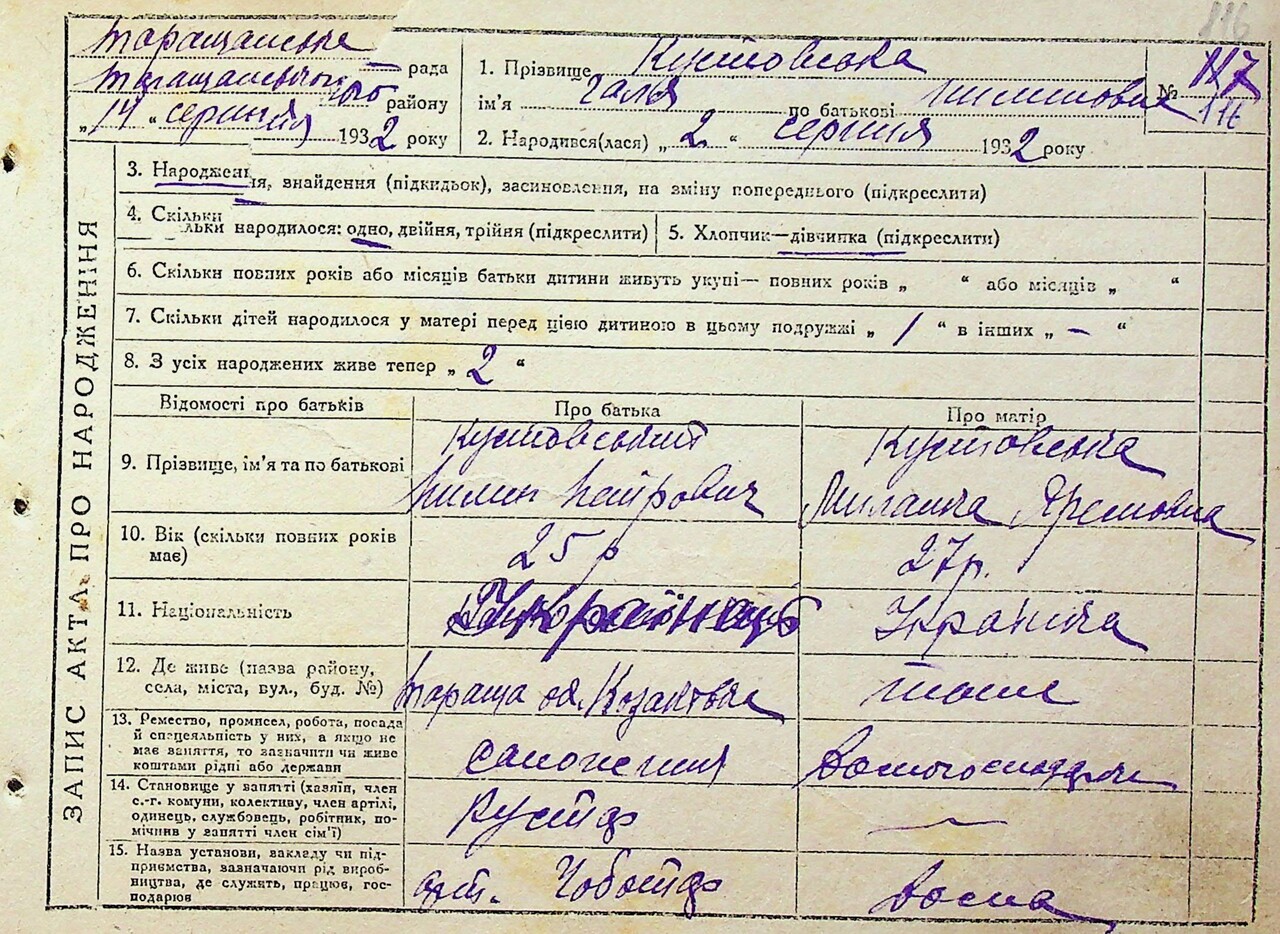 116
Таращанська рада
Таращанського району
„14“ серпня 1932 року
1. Прізвище Кустовська
ім'я Галя по батькові
№ 117
116
2. Народився(лася) „2“ серпня 1932 року
ЗАПИС АКТА ПРО НАРОДЖЕННЯ
3. Народження, знайдення (підкидьок), засиновлення, на зміну попереднього (підкреслити)
4. Скільки
льки народилося: одно, двійня, трійня (підкреслити)
5. Хлопчик—дівчинка (підкреслити)
6. Скільки повних років або місяців батьки дитини живуть укупі— повних років „ “ або місяців „ “
7. Скільки дітей народилося у матері перед цією дитиною в цьому подружжі „ 1 “ в інших „ — “
8. З усіх народжених живе тепер „ 2 “
Відомості про батьків
Про батька
Про матір
9. Прізвище, ім'я та по батькові
Кустовський
Пилип Петрович
Кустовська
Миланка Яремовна
10. Вік (скільки повних років
має)
25 р
27 р.
11. Національність
Українець
Українка
12. Де живе (назва району,
села, міста, вул., буд. №)
Тараща
тоже
13. Ремество, промисел, робота, посада
й спецеяльність у них, а якщо не
має заняття, то зазначити чи живе
коштами рідні або держави
14. Становище у занятті (хазяїн, член
с.-г. комуни, колективу, член артілі,
одинець, службовець, робітник, по-
мічний у занятті член сім'ї)
Кустар
—
15. Назва установи, закладу чи під-
приємства, зазначаючи рід вироб-
ництва, де служить, працює, гос-
подарює
арт. Чоботар